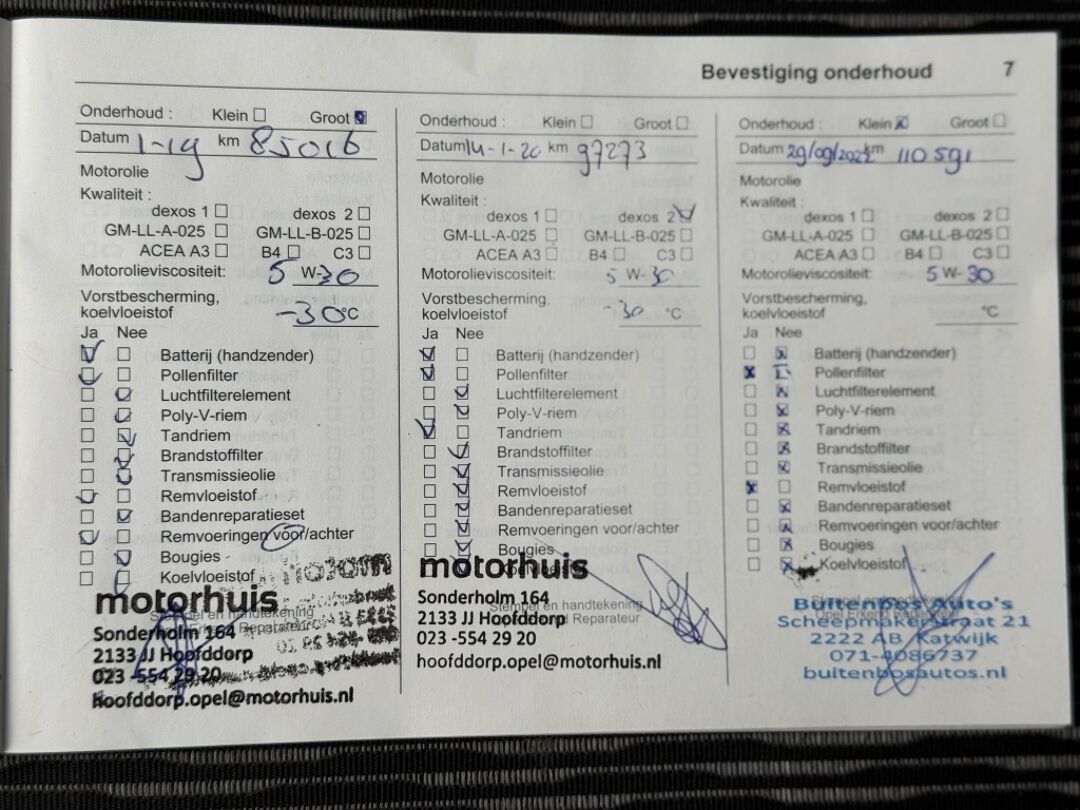 Bevestiging onderhoud 7
Onderhoud : Klein Groot
Datum 1-19 km 85016
Motorolie
Kwaliteit :
dexos 1 dexos 2
GM-LL-A-025 GM-LL-B-025
ACEA A3 B4 C3
Motorolieviscositeit: 5 W-30
Vorstbescherming,
koelvloeistof -30°C
Ja Nee
Batterij (handzender)
Pollenfilter
Luchtfilterelement
Poly-V-riem
Tandriem
Brandstoffilter
Transmissieolie
Remvloeistof
Bandenreparatieset
Remvoeringen voor/achter
Bougies
Koelvloeistof
motorhuis
Sonderholm 164
2133 JJ Hoofddorp
023 -554 29 20
hoofddorp.opel@motorhuis.nl
Onderhoud : Klein Groot
Datum 14-1-20 km 97273
Motorolie
Kwaliteit :
dexos 1 dexos 2
GM-LL-A-025 GM-LL-B-025
ACEA A3 B4 C3
Motorolieviscositeit: 5 W-30
Vorstbescherming,
koelvloeistof -30 °C
Ja Nee
Batterij (handzender)
Pollenfilter
Luchtfilterelement
Poly-V-riem
Tandriem
Brandstoffilter
Transmissieolie
Remvloeistof
Bandenreparatieset
Remvoeringen voor/achter
Bougies
motorhuis
Sonderholm 164
Stempel en handtekening
2133 JJ Hoofddorp Reparateur
023 -554 29 20
hoofddorp.opel@motorhuis.nl
Onderhoud : Klein Groot
Datum 29/09/2022 km 110591
Motorolie
Kwaliteit :
dexos 1 dexos 2
GM-LL-A-025 GM-LL-B-025
ACEA A3 B4 C3
Motorolieviscositeit: 5 W-30
Vorstbescherming,
koelvloeistof °C
Ja Nee
Batterij (handzender)
Pollenfilter
Luchtfilterelement
Poly-V-riem
Tandriem
Brandstoffilter
Transmissieolie
Remvloeistof
Bandenreparatieset
Remvoeringen voor/achter
Bougies
Koelvloeistof
Buitenbos Auto's
Scheepmakerstraat 21
2222 AB Katwijk
071-4086737
buitenbosautos.nl